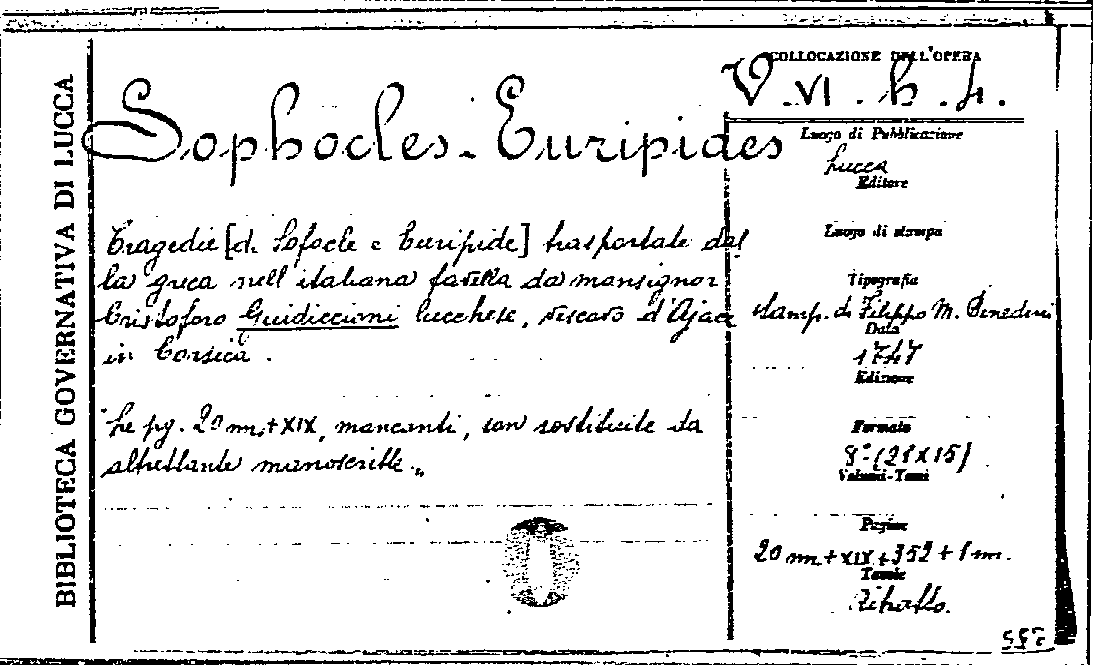 BIBLIOTECA GOVERNATIVA DI LUCCA
COLLOCAZIONE DELL'OPERA
V. VI. h. 4.
Sophocles - Euripides
Luogo di Pubblicazione
Lucca
Editore
Tragedie [di Sofocle e Euripide] trasportate dal
la greca nell'italiana favella da monsignor
Cristoforo Guidiccioni lucchese, vescovo d'Ajac
in Corsica.
"Le pg. 20 nn. + XIX, mancanti, son sostituite da
altrettante manoscritte."
Luogo di stampa
Tipografia
stamp. di Filippo M. Benedini
Data
1747
Edizione
Formato
8° (21 x 15)
Volumi-Tomi
Pagine
20 nn + XIX + 352 + 1 nn.
Tavole
Ritratto.